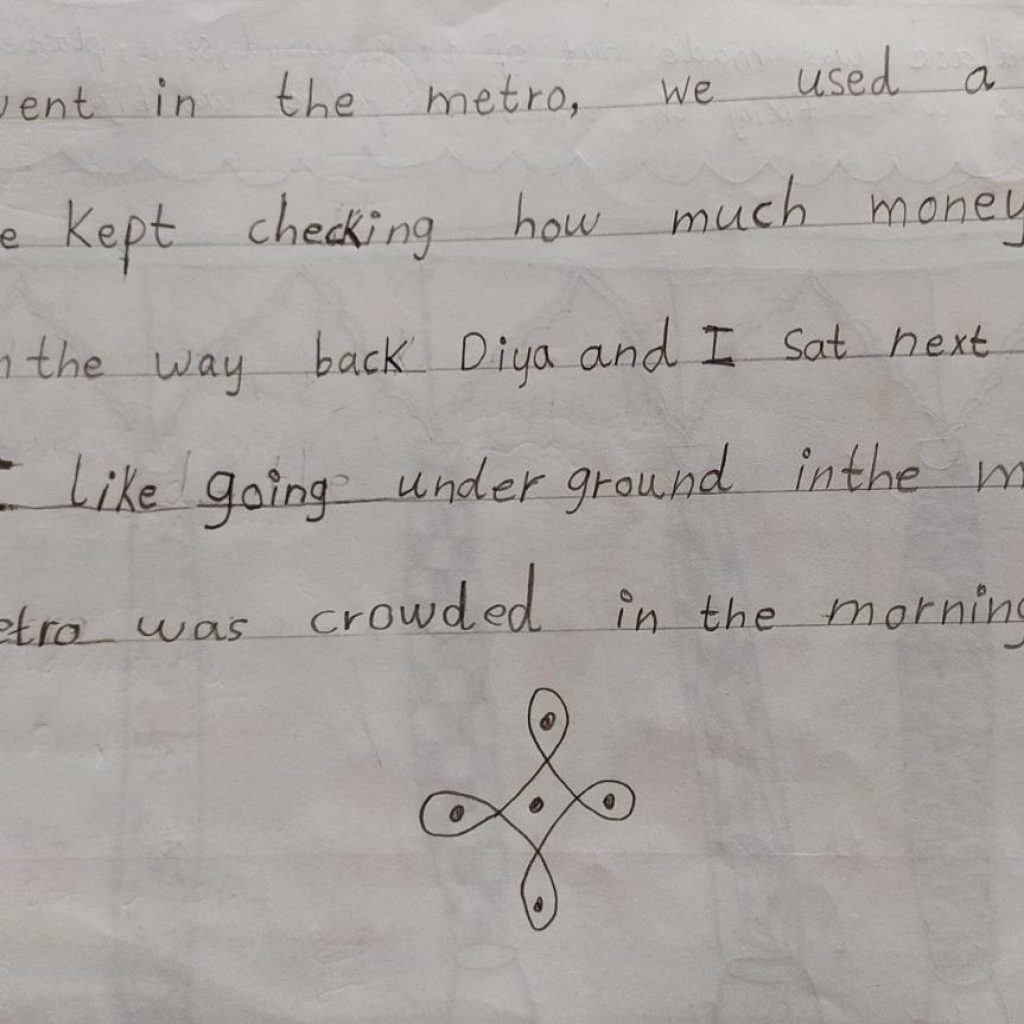 in the metro, we used a
Kept checking how much money
the way back Diya and I sat next
I like going under ground inthe
was crowded in the morning